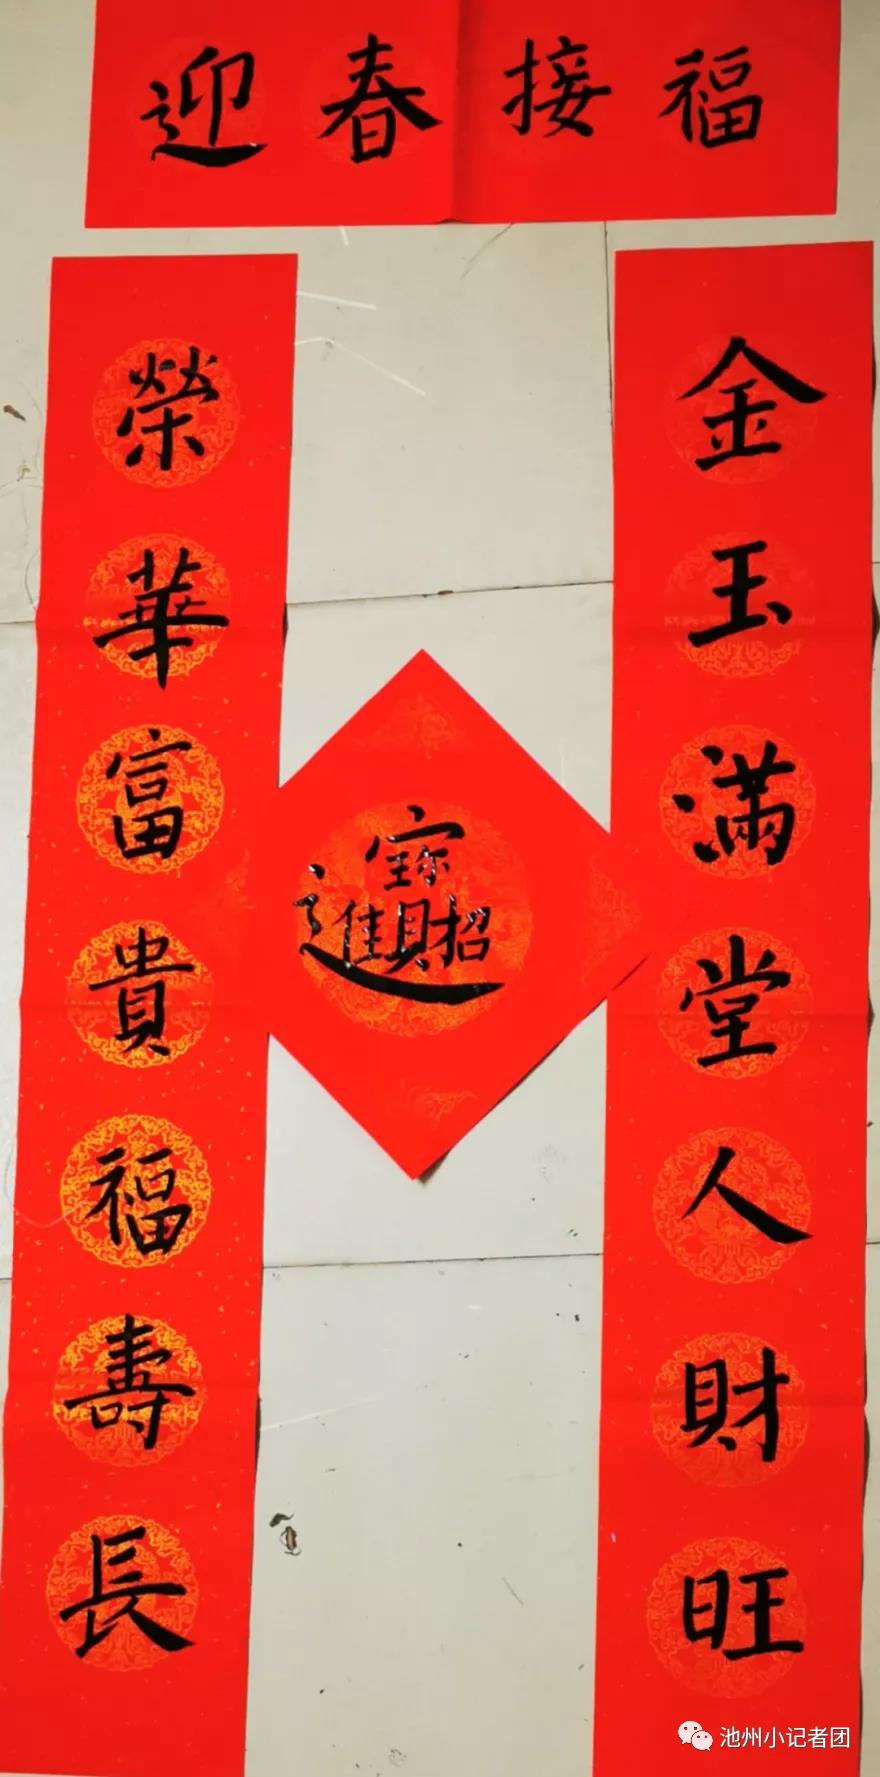 迎春接福
金玉滿堂人財旺
榮華富貴福壽長
招財進寳
池州小记者团